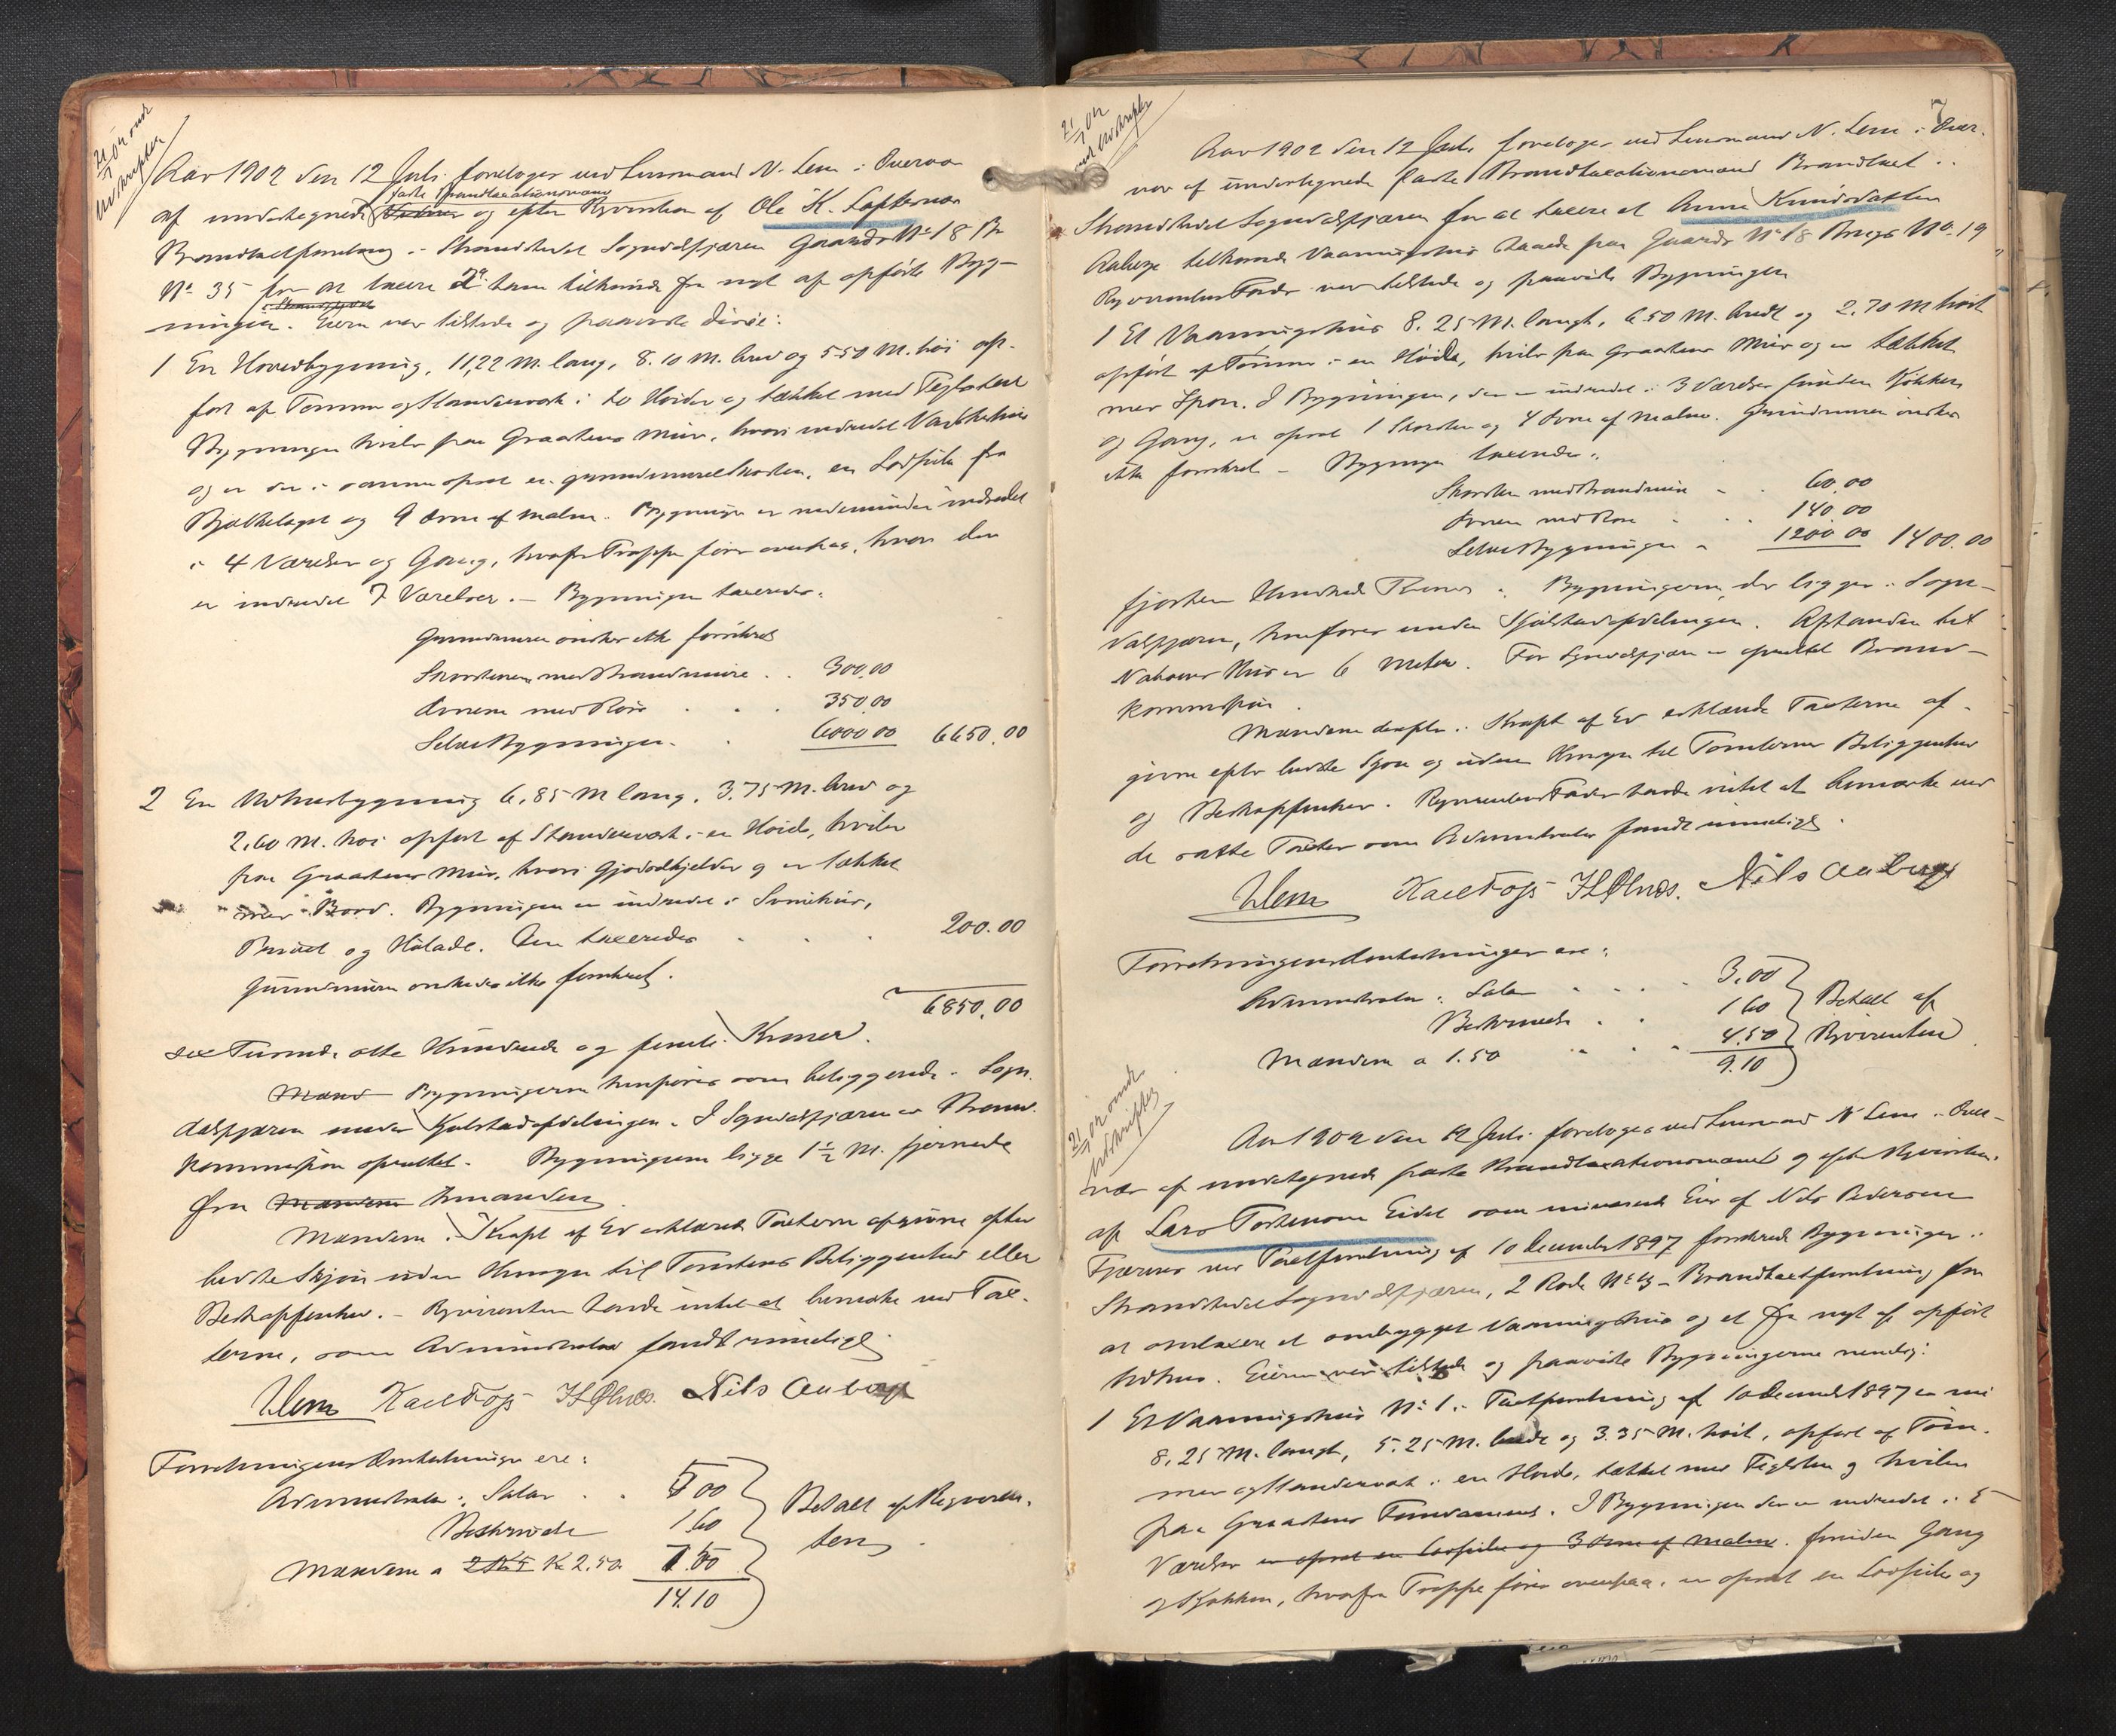 21/7 02 ondt
Udskrifter
Aar 1902 den 12 Juli foretoges ved Lensmand N. Lem i Overvær
faste Brandtaxationsmænd
af undertegnede og efter Reqvirition af Ole K. Loftesnæs
Brandtaxtforretning i Strandstedet Sogndalsfjæren Gaards No 18 Br
No 35 for at taxere 2de ham tilhørende fra nyt af opførte Byg-
ninger. Eieren var tilstede og paaviste disse:
1 En Hovedbygning, 11,22 M. lang, 8.10 M. bred og 5.50 M. høi op-
ført af Tømmer og Standerværk i to Høider og tækket med Teglsten
Bygningen hviler paa Graastens Mur, hvori indredet Vaskehus
og er der i samme opsat en grundmuret Skorsten, en Lodpibe fra
Bjælkelaget og 9 Ovne af Malm. Bygningen er nedenunder indredet
i 4 Værelser og Gang, hvorfra Trappe fører ovenpaa, hvor der
er indredet 7 Værelser. – Bygningen taxeredes:
Grundmuren ønskes ikke forsikret
Skorstenen med Brandmure . . 300,00
Ovnene med Rør . . . 350,00
Selve Bygningen . . 6000 00 6650,00
2 En Udhusbygning 6,85 M lang, 3.75 M. bred og
2,60 M. høi opført af Standerværk i en Høide, hviler
paa Graastens Mur, hvori Gjødselkjelder og er tækket
med Bord. Bygningen er indredet i Svinehus,
Privet og Hølade. Den taxeredes . . . 200.00
Grundmuren ønskedes ikke forsikret.
6850,00
sex Tusinde otte Hundrede og femti Kroner.
Bygningerne henføres som beliggende i Sogn-
dalsfjæren under Hjelstadafdelingen. I Sogndalsfjæren er Brand-
kommission oprettet. Bygningerne ligge 1½ M. fjernede
fra hinanden
Mændene i Kraft af Ed erklærede Taxterne afgivne efter
bedste Skjøn uden Hensyn til Tomtens Beliggenhed eller
Beskaffenhed. – Reqvirenten havde intet at bemærke ved Tax-
terne, som Administrator fandt rimelige.
NLem Karl Foss H Ølnes. Nils Aaberge
Forretningens Omkostninger ere:
Administrator: Salær . . 5 00
Beskrivelse 1 60
Mændene a Kr 2.50 7.50
14.10
Betalt af Reqviren-
ten
7
21/7 02
ondt Udskrifter
Aar 1902 den 12 Juli foretoges ved Lensmand N. Lem i Over-
vær af undertegnede faste Brandtaxationsmænd Brandtaxt i
Strandstedet Sogndalsfjæren for at taxere et Anne Knudsdatter
Aaberge tilhørende Vaaningshus staaende paa Gaards No 18 Brugs No 19
Reqvirentens Fader var tilstede og paaviste Bygningen
1 Et Vaaningshus 8.25 M. langt, 6.50 M. bredt og 2.70 M høit
opført af Tømmer i en Høide, hviler paa Graastens Mur og er tækket
med Spon. I Bygningen, der er indredet i 3 Værelser foruden Kjøkken
og Gang, er opsat 1 Skorsten og 4 Ovne af Malm. Grundmuren ønskes
ikke forsikret – Bygningen taxeredes:
Skorsten med Brandmur . . 60,00
Ovnene med Rør . . . 140 00
Selve Bygningen . 1200 00 1400.00
fjorten Hundrede Kroner. Bygningerne, der ligger i Sogn-
dalsfjæren, henføres under Hjelstadafdelingen. Afstanden til
Naboens Hus er 6 Meter. For Sogndalsfjæren er oprettet Brand-
kommission.
Mændene i Kraft af Ed erklærede Taxterne af-
givne efter bedste Skjøn og uden Hensyn til Tomternes Beliggenhed
og Beskaffenhed. Reqvirentens Fader havde intet at bemærke ved
de satte Taxter som Administrator fandt rimelige.
NLem Karl Foss H Ølnes. Nils Aaberge
Forretningens Omkostninger ere:
Administrator: Salær . . . 3,00
Beskrivelse . . 1 60
Mændene a 1.50 . . . 4.50
9.10
Betalt af
Reqvirenten
21/7 02 ondt
Udskrifter
Aar 1902 den 12 Juli foretoges ved Lensmand N Lem i Over-
vær af undertegnede faste Brandtaxationsmænd og efter Reqvirition
af Lars Torstensen Eidet som nuværende Eier af Nils Pedersens
Fjæren ved Taxtforretning af 10 December 1897 forsikrede Bygninger i
Strandstedet Sogndalsfjæren, 2 Rode No Brandtaxtforretning for
at omtaxere et ombygget Vaaningshus og et fra nyt af opført
Udhus. Eieren var tilstede og paaviste Bygningerne nemlig:
1 Et Vaaningshus No 1 i Taxtforretning af 10 December 1897 er nu
8,25 M. langt, 5.25 M. bredt og 3.35 M. høit, opført af Tøm-
mer og Standerværk i en Høide, tækket med Teglsten og hviler
paa Graastens Fundament. I Bygningen der er indredet i 5
Værelser er opsat en Lodpibe og 3 Ovne af Malm. foruden Gang
og Kjøkken, hvorfra Trappe fører ovenpaa, er opsat en Lodpibe og